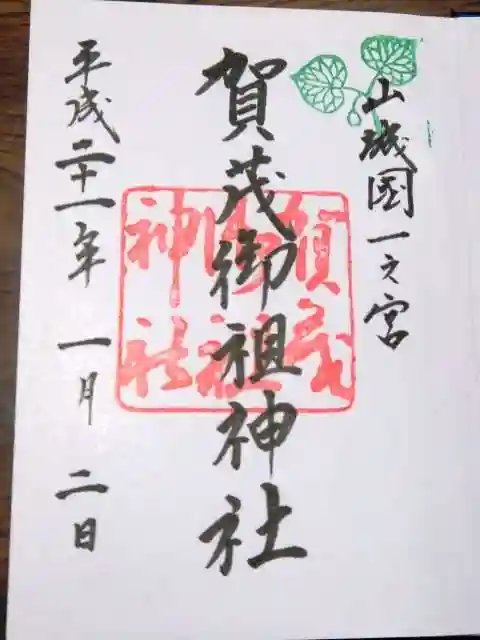 山城國一之宮
賀茂御祖神社
賀茂
御祖
神社
平成二十一年 一月 二日